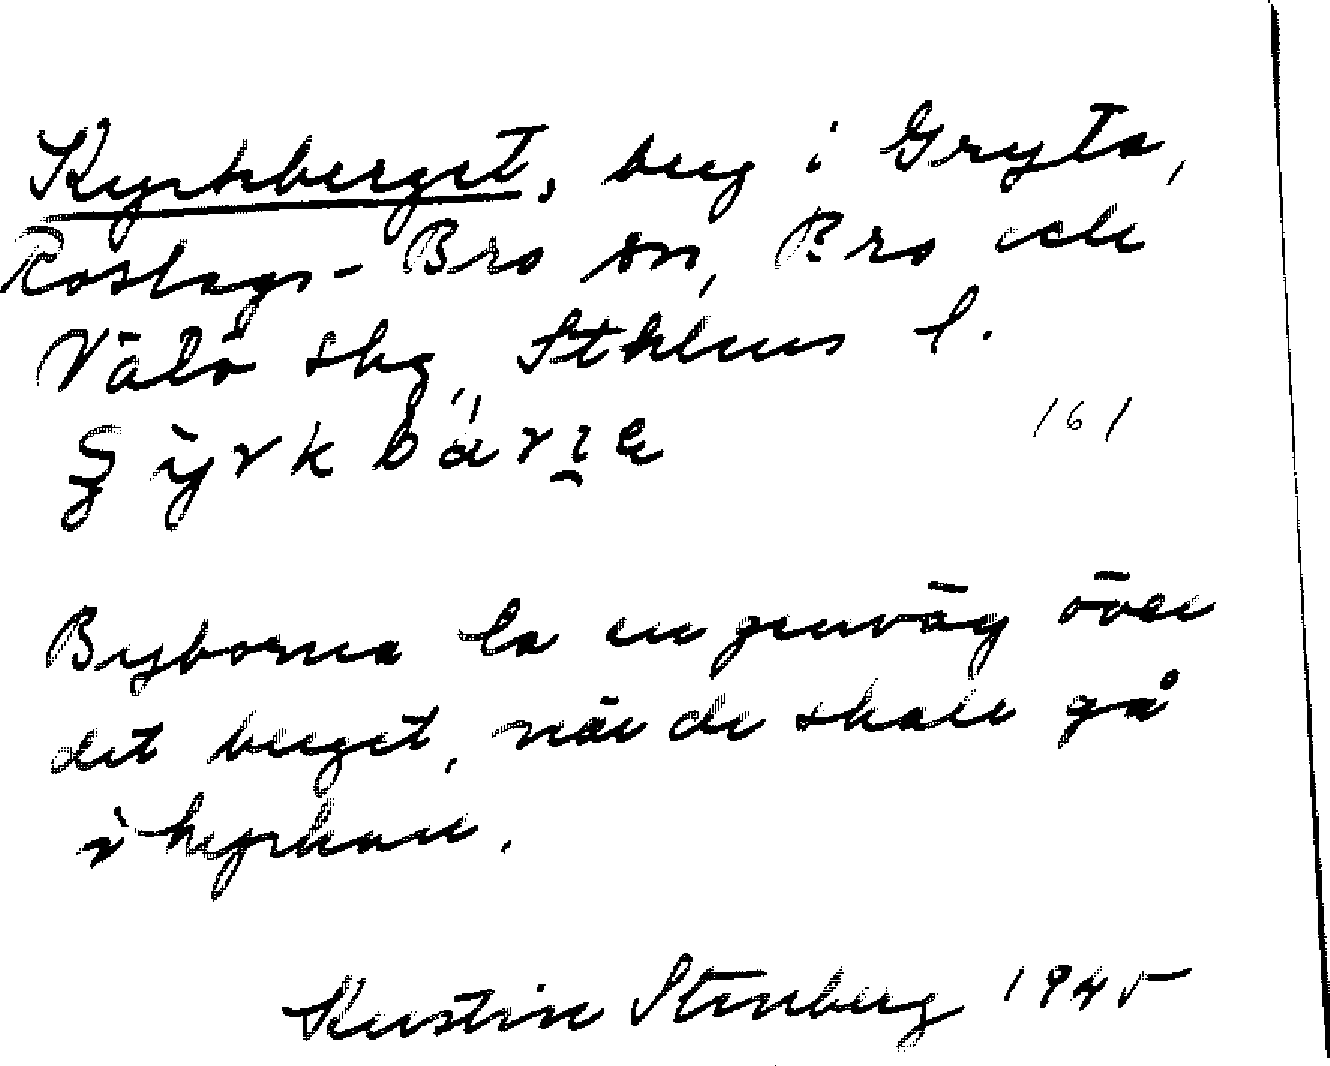 Kyrkberget, berg i Gryta,
Roslags-Bro sn, Bro och
Vätö skg, Sthlms l.
161
Byborna ha en genväg över
det berget, när de skall gå
i kyrkan.
Kerstin Stenberg 1945